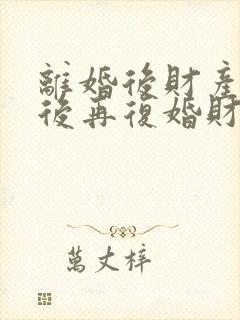 離婚後財產
後再復婚財
萬丈梓